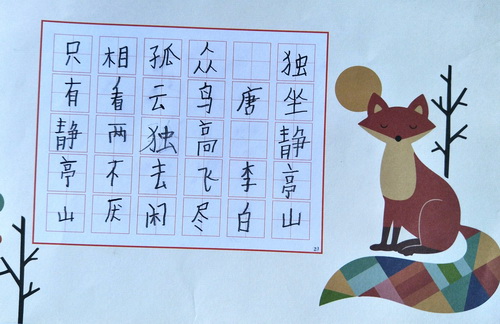 独坐静亭山
唐 李白
众鸟高飞尽
孤云独去闲
相看两不厌
只有静亭山
27